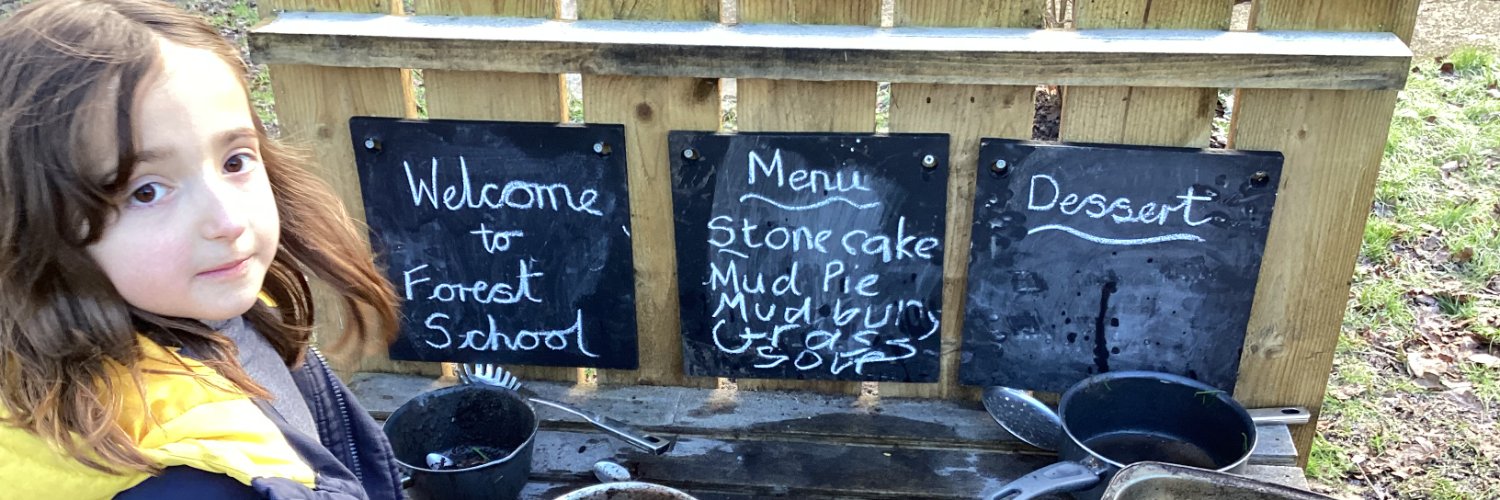 Welcome
to
Forest
School
Menu
Stone cake
Mud Pie
Mud buns
Grass
soup
Dessert